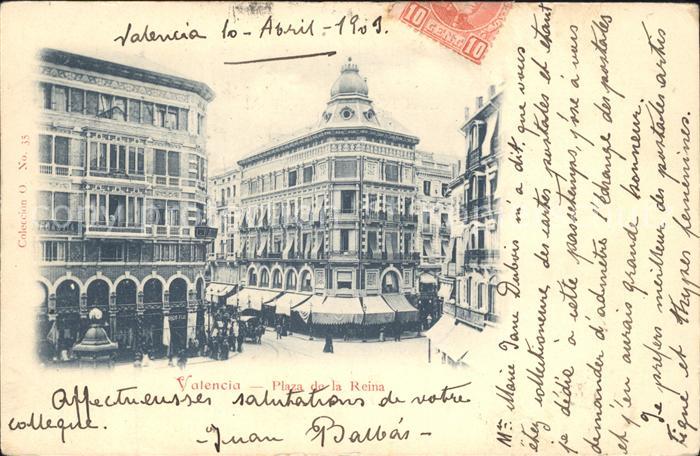 Valencia 10-Abril-1903.
10 CENT.s 10
Colección O No. 35
Valencia — Plaza de la Reina
Affectueusses salutations de votre
collegue.
-Juan Balbás-
Mme Marie Jane Dubois m'a dit que vous
étez collectioneuse des cartes postales et étant
je dédié à cette passetemps, j'ose à vous
demander d'admétre l'échange des postales
et j'en aurais grande honneur.
Je préfers meilleur des postales artis
tique et thypes feminines.